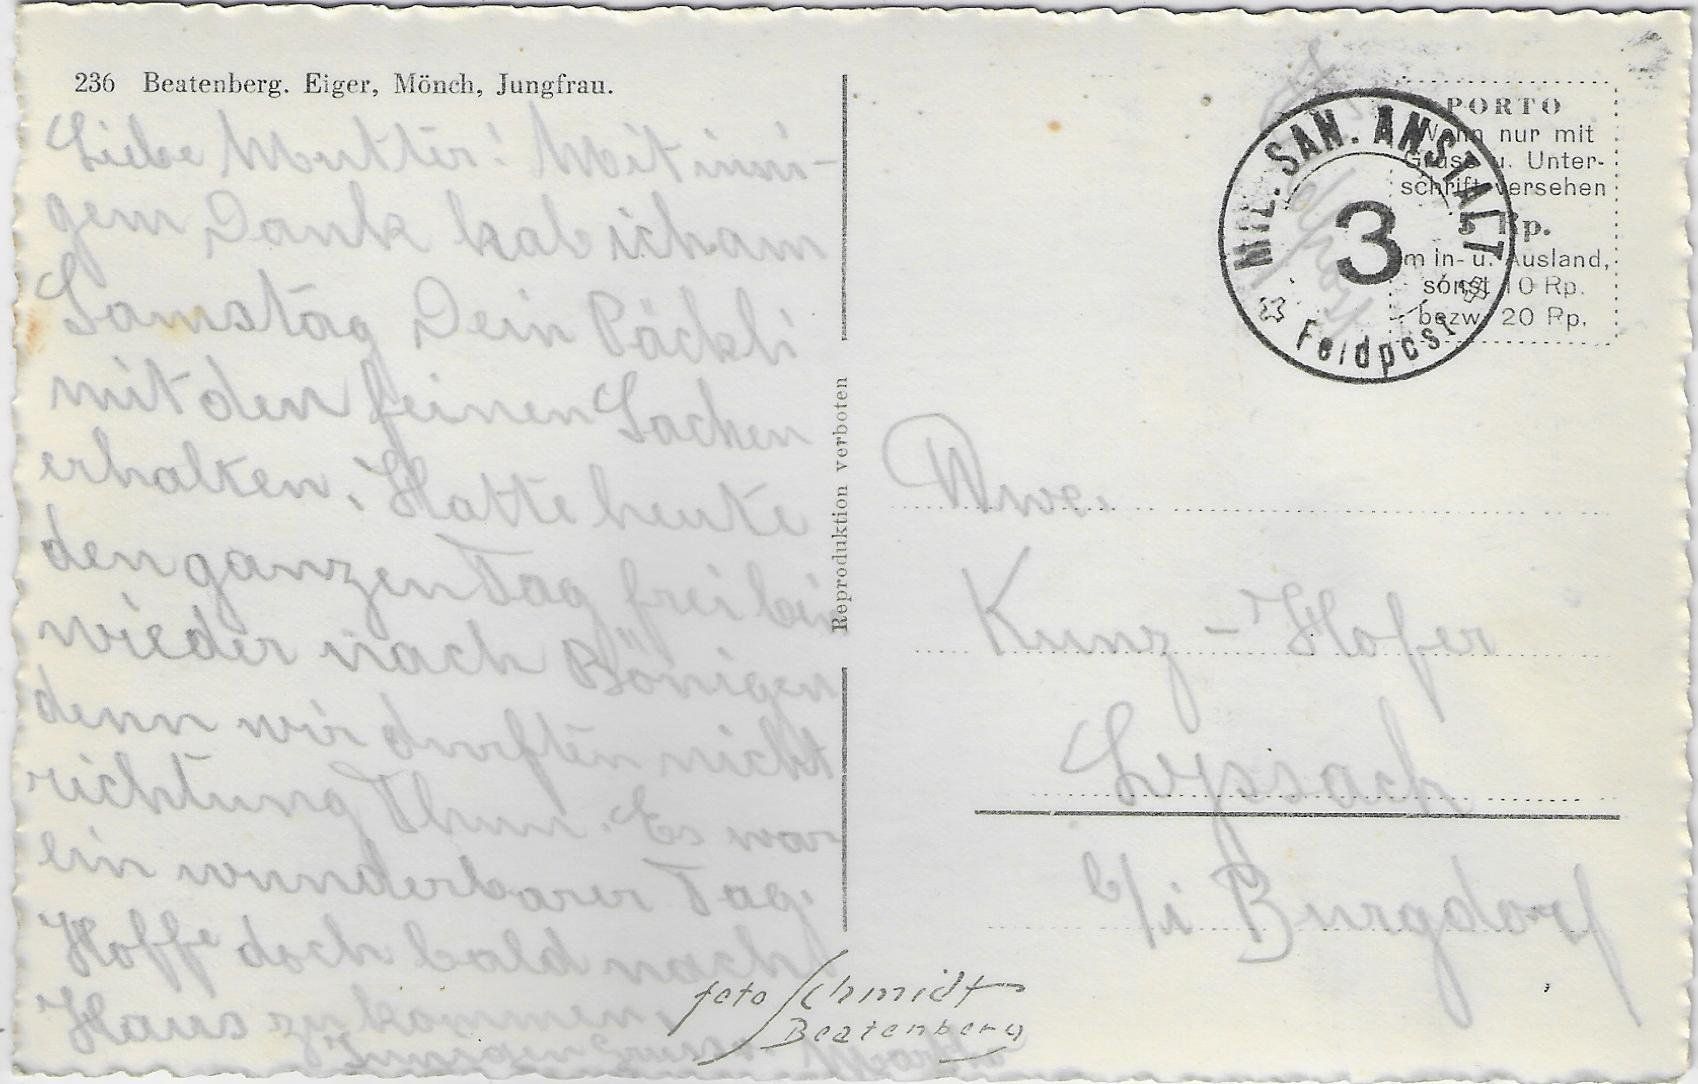 236 Beatenberg. Eiger, Mönch, Jungfrau.
Liebe Mutter! Mit inni-
gem Dank hab ich am
Samstag Dein Päckli
mit den feinen Sachen
erhalten. Hatte heute
den ganzen Tag frei bin
wieder nach Bönigen
denn wir durften nicht
richtung Thun. Es war
ein wunderbarer Tag.
Hoffe doch bald nach
Haus zu kommen
Reproduktion verboten
foto Schmidt
Beatenberg
MIL. SAN. ANSTALT
3
Feldpost
PORTO
Wenn nur mit
Gruss u. Unter-
schrift versehen
5 Rp.
im in- u. Ausland,
sonst 10 Rp.
bezw. 20 Rp.
Wwe.
Kunz-Hofer
Lyssach
b/i Burgdorf